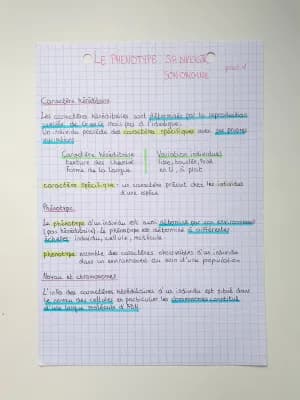 LE PHÉNOTYPE, SA DIVERSITÉ
SON ORIGINE
Caractère héréditaire
Les caractères héréditaires sont déterminés par la reproduction
mais pas à l'identique.
Un individu possède des caractères spécifiques avec ses propres
variations
Caractère héréditaire
Variation individuelle
texture des cheveux
lisse, bouclés, frisés
forme de la langue
en U, à plat
caractère spécifique : un caractère présent chez les individus
d'une espèce
Phénotype
Le phénotype d'un individu est aussi déterminé par son environnement
(pas héréditaire). Le phénotype est déterminé à différentes
échelles : individu, cellule, molécule.
phénotype : ensemble des caractères observables d'un individu
dans un environnement au sein d'une population
Noyau et chromosomes
L'info des caractères héréditaires d'un individu est situé dans
le noyau des cellules en particulier les chromosomes constitué
d'une longue molécule d'ADN